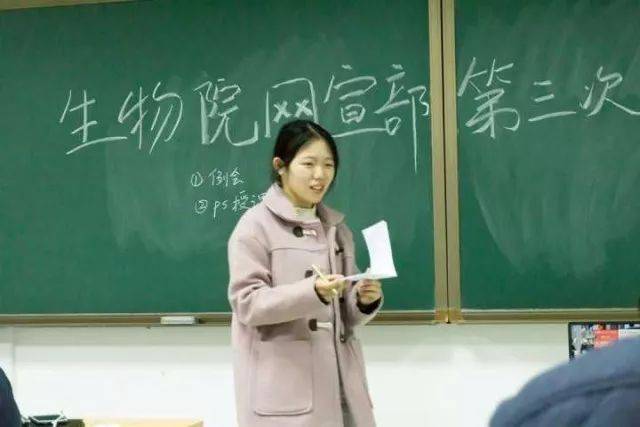 生物院网宣部第三次
① 例会
② PS授课